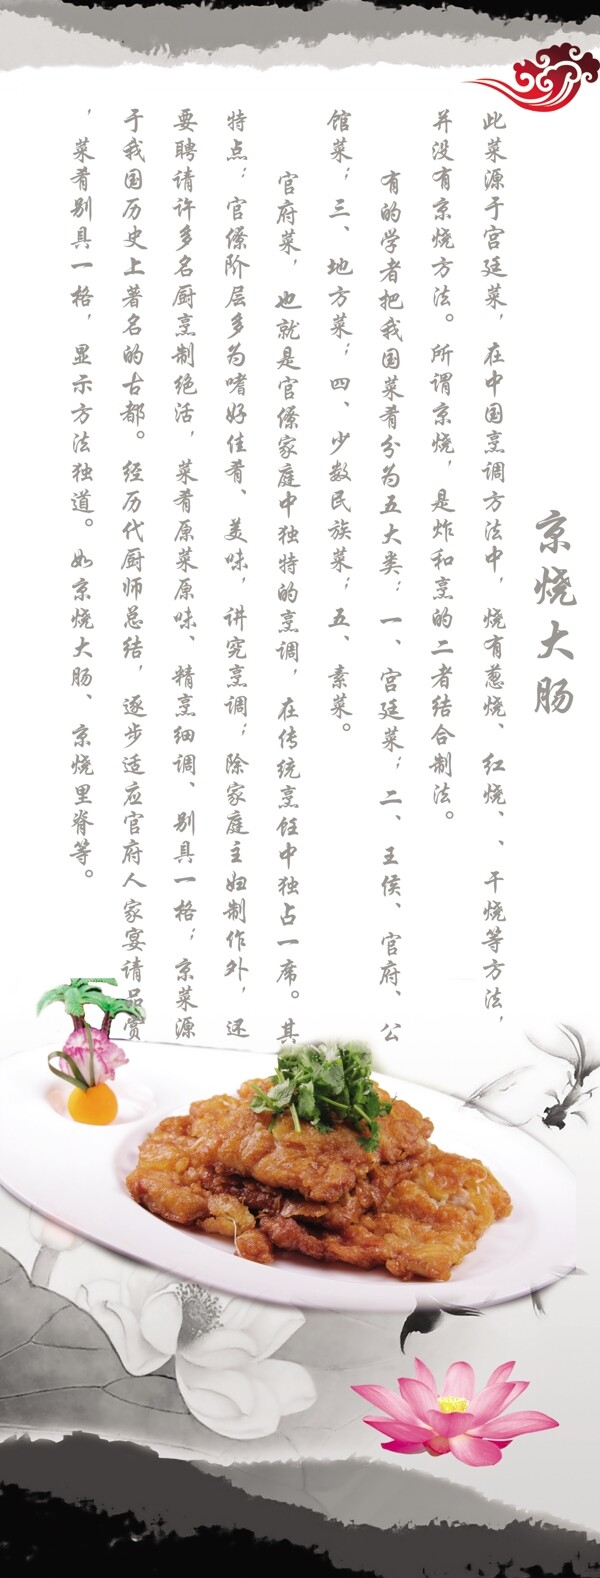 京烧大肠
此菜源于宫廷菜，在中国烹调方法中，烧有葱烧、红烧、、干烧等方法，
并没有京烧方法。所谓京烧，是炸和烹的二者结合制法。
有的学者把我国菜肴分为五大类：一、宫廷菜；二、王侯、官府、公
馆菜；三、地方菜；四、少数民族菜；五、素菜。
官府菜，也就是官僚家庭中独特的烹调，在传统烹饪中独占一席。其
特点：官僚阶层多为嗜好佳肴、美味，讲究烹调；除家庭主妇制作外，还
要聘请许多名厨烹制绝活，菜肴原菜原味、精烹细调、别具一格；京菜源
于我国历史上著名的古都。经历代厨师总结，逐步适应官府人家宴请品赏
，菜肴别具一格，显示方法独道。如京烧大肠、京烧里脊等。